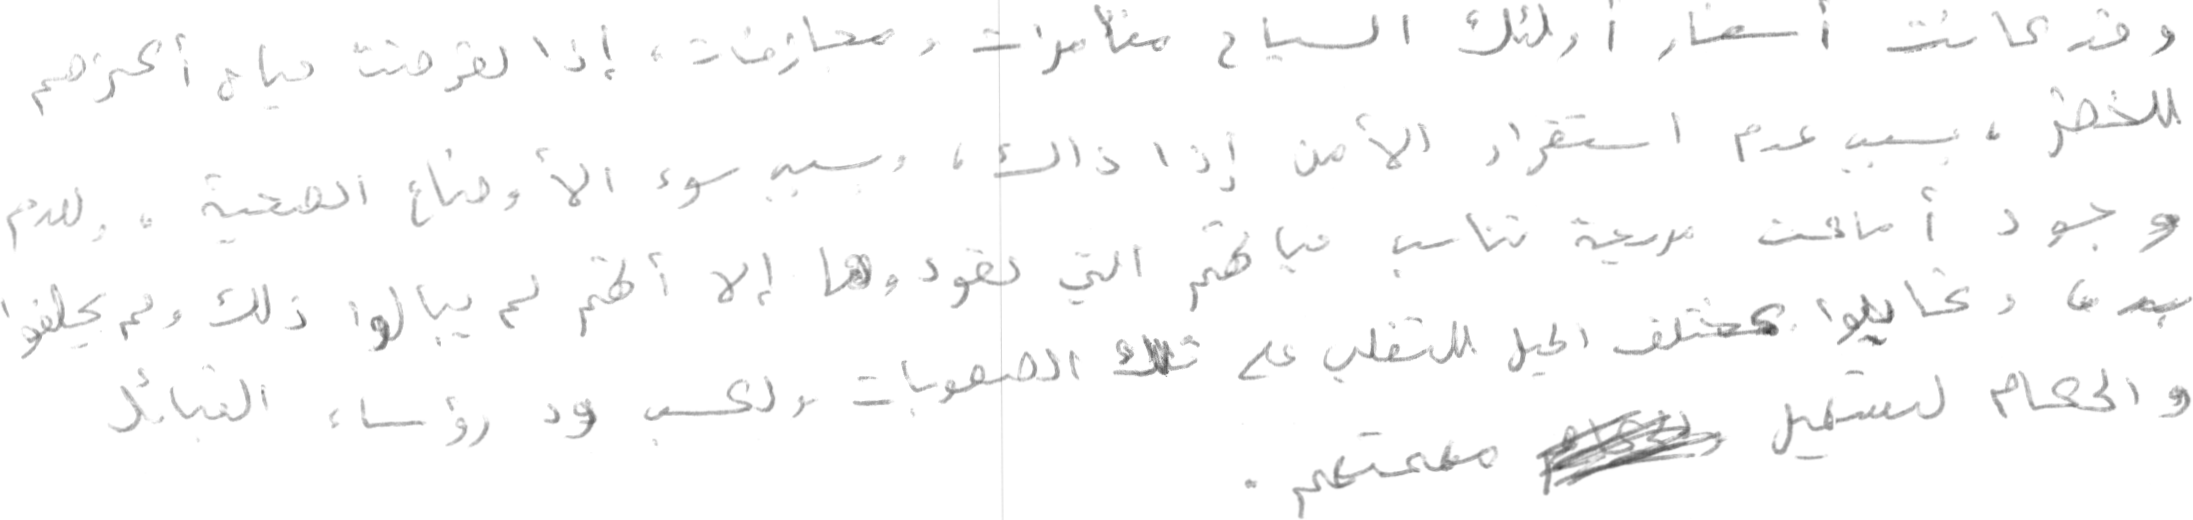 وقد كانت أسفار أولئك السياح مغامرات ومجازفات، إذا تعرضت حياة أكثرهم
للخطر، بسبب عدم استقرار الأمن إذا ذاك، وبسبب سوء الأوضاع الصحية، ولعدم
وجود أماكن مريحة تناسب حياتهم التي تعودوها إلا أنهم لم يبالوا ذلك ولم يحلفوا
به وتحايلوا بمختلف الحيل للتغلب على تلك الصعوبات ولكسب ود رؤساء القبائل
والحكام لتستهيل مهمتهم.